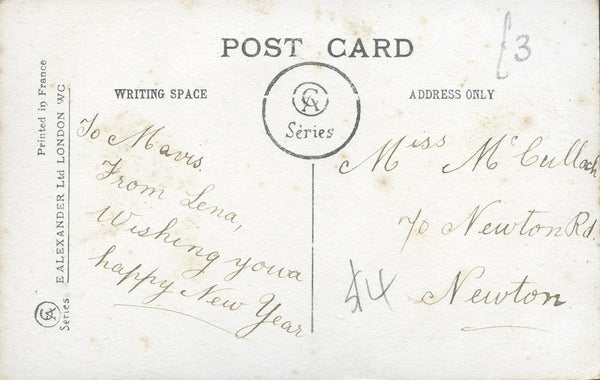 POST CARD
£3
WRITING SPACE
ADDRESS ONLY
CA
Séries
Printed in France
E ALEXANDER Ltd LONDON WC
CA
Séries
To Mavis.
From Lena,
Wishing you a
happy New Year
Miss McCulloch
70 Newton Rd.
Newton
$4